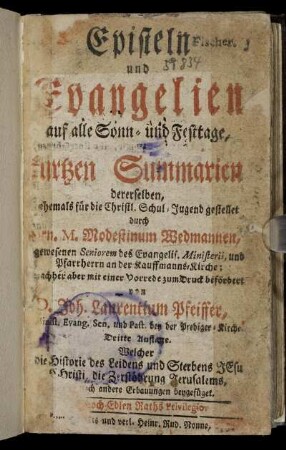 Episteln
Fischer.
59834
und
Evangelien
auf alle Sonn- und Festtage,
kurtzen Summarien
dererselben,
ehemals für die Christl. Schul-Jugend gestellet
durch
Hrn. M. Modestinum Wedmannen,
gewesenen Seniorem des Evangelis. Ministerii, und
Pfarrherrn an der Kauffmanns-Kirche;
nachher aber mit einer Vorrede zum Druck befördert
von
D. Joh. Laurentium Pfeiffer,
Evang. Sen. und Past. bey der Prediger-Kirche
Dritte Auflage.
Welcher
die Historie des Leidens und Sterbens JEsu
Christi, die Zerstöhrung Jerusalems,
andere Erbauungen beygefüget.
Hoch-Edlen Raths Privilegio.
und verl. Heinr. Rud. Nonne,